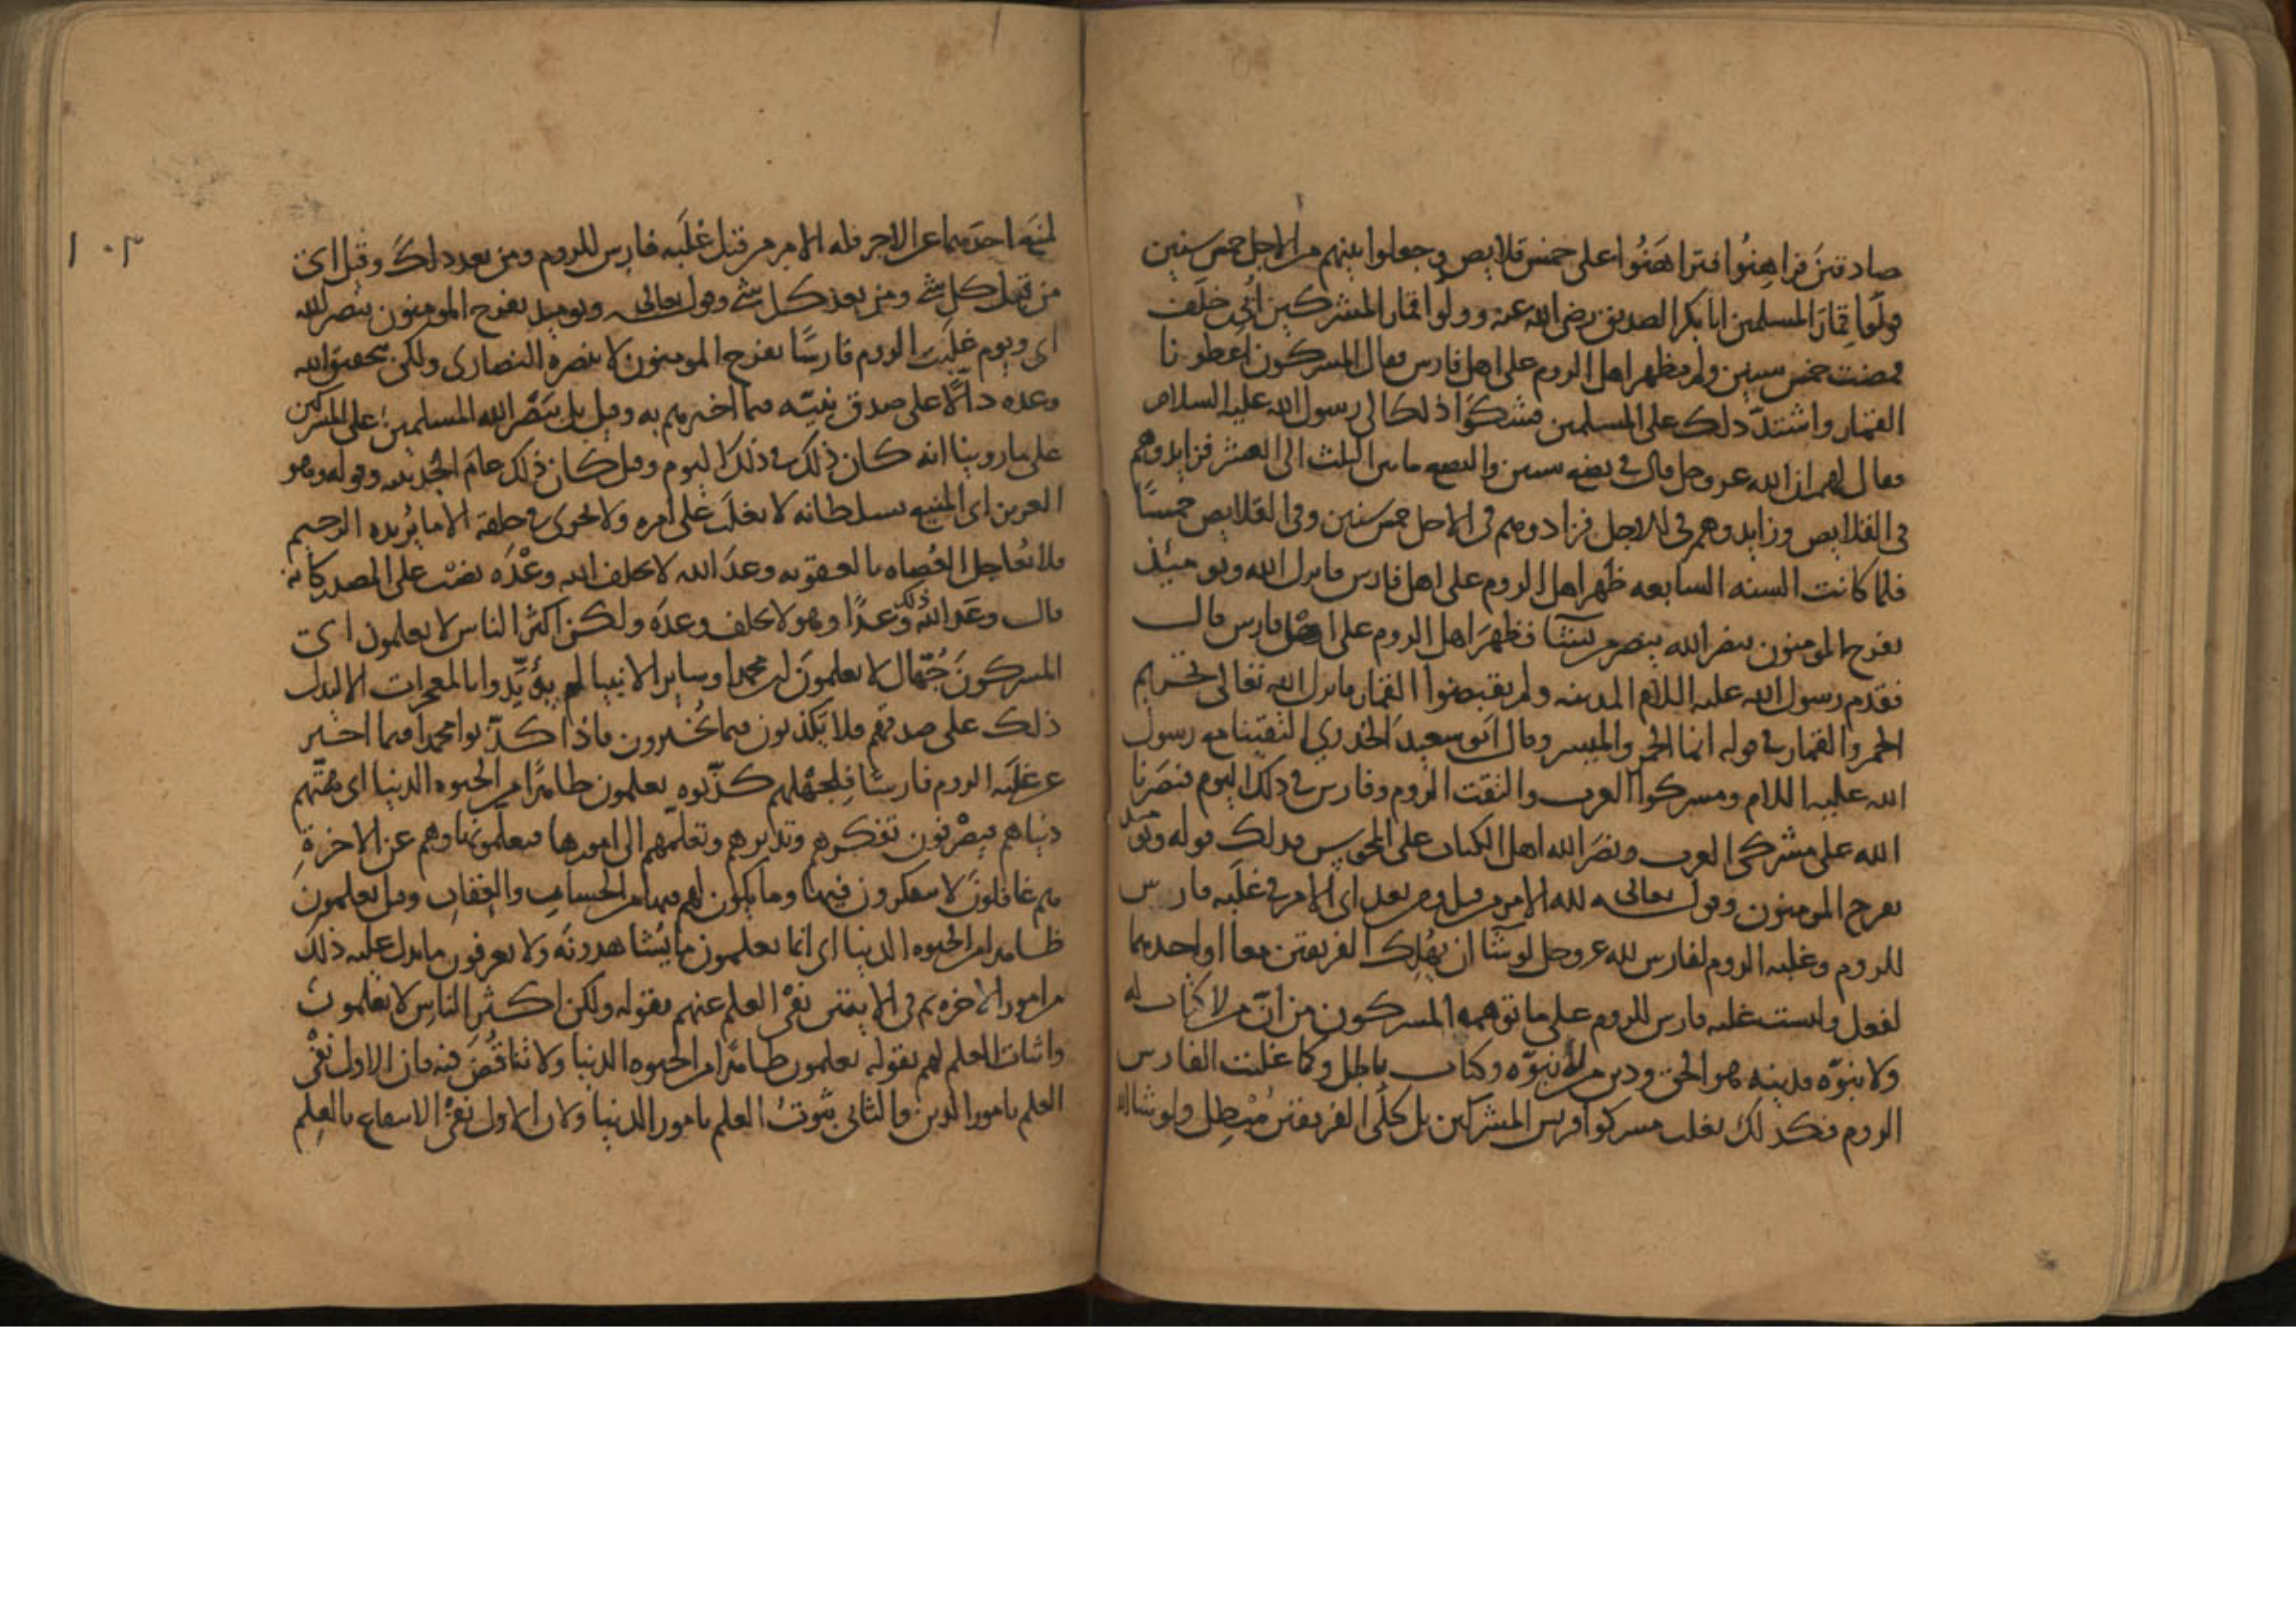 صادقين فراهنوا فتراهنوا على خمس قلايص وجعلوا بينهم من الاجل خمس سنين
وولوا قمار المسلمين ابا بكر الصديق رضي الله عنه وولوا قمار المشركين ابي خلف
فمضت خمس سنين ولم يظهر اهل الروم على اهل فارس فقال المشركون اعطونا
القمار واشتد ذلك على المسلمين فشكوا ذلك الى رسول الله عليه السلام
فقال لهم ان الله عز وجل قال في بضع سنين والبضع ما بين الثلث الى العشر فزايدوهم
في القلايص وزايدوهم في الاجل فزادوهم في الاجل خمس سنين وفي القلايص خمسا
فلما كانت السنه السابعه ظهر اهل الروم على اهل فارس فانزل الله ويومئذ
يفرح المومنون بنصر الله ينصر من يشا فظهر اهل الروم على اهل فارس قال
فقدم رسول الله عليه السلام المدينه ولم يقبضوا القمار فانزل الله تعالى تحريم
الخمر والقمار في قوله انما الخمر والميسر وقال ابو سعيد الخدري التقينا مع رسول
الله عليه السلام ومشركوا العرب والتقت الروم وفارس في ذلك اليوم فنصرنا
الله على مشركي العرب ونصر الله اهل الكتاب على المجوس فذلك قوله ويومئذ
يفرح المومنون وقوله تعالى لله الامر من قبل ومن بعد اي الامر في غلبه فارس
للروم وغلبه الروم لفارس لله عز وجل لو شا ان يهلك الفريقين معا او احدهما
لفعل وليست غلبه فارس للروم على ما توهمه المشركون من ان من لا كتاب له
ولا نبوه فدينه هو الحق ودين من له نبوه وكتاب باطل وكما غلبت الفارس
الروم فكذلك يغلب مشركوا قريش المشركين بل كلي الفريقين مبطل ولو شا الله
لمنع احدهما عن الاخر فله الامر من قبل غلبه فارس للروم ومن بعد ذلك وقيل اي
من قبل كل شي ومن بعد كل شي وقوله تعالى ويوميذ يفرح المومنون بنصر الله
اي ويوم غلبت الروم فارسا يفرح المومنون لا بنصره النصارى ولكن بتحقيق الله
وعده دالا على صدق نبيه فيما اخبرهم به وقيل بل بنصر الله المسلمين على المشركين
على ما روينا انه كان ذلك في ذلك اليوم وقيل كان ذلك عام الحديبيه وقوله وهو
العزيز اي المنيع بسلطانه لا يغلب على امره ولا يجري في خلقه الا ما يريده الرحيم
فلا يعاجل العصاه بالعقوبه وعد الله لا يخلف الله وعده نصب على المصدر كانه
قال وعد الله ذلك وعدا وهو لا يخلف وعده ولكن اكثر الناس لا يعلمون اي
المشركون جهال لا يعلمون ان محمدا وساير الانبيا لم يويدوا بالمعجزات الا ليدل
ذلك على صدقهم فلا يكذبون فيما يخبرون فاذا كذبوا محمدا فيما اخبر
عن غلبه الروم فارسا فلجهلهم كذبوه يعلمون ظاهرا من الحيوه الدنيا اي همتهم
دنياهم فيصرفون تفكرهم وتدبرهم وتعلمهم الى امورها فيعلمونها وهم عن الاخرة
هم غافلون لا يتفكرون فيها وما يكون لهم فيها من الحساب والعقاب وقيل يعلمون
ظاهرا من الحيوه الدنيا اي انما يعلمون ما يشاهدونه ولا يعرفون ما يدل عليه ذلك
من امور الاخره ثم في الايتين نفى العلم عنهم بقوله ولكن اكثر الناس لا يعلمون
واثبات العلم لهم بقوله يعلمون ظاهرا من الحيوه الدنيا ولا تناقض فيه فان الاول نفي
العلم بامور الدين والثاني ثبوت العلم بامور الدنيا ولان الاول نفي الانتفاع بالعلم
١٠٣